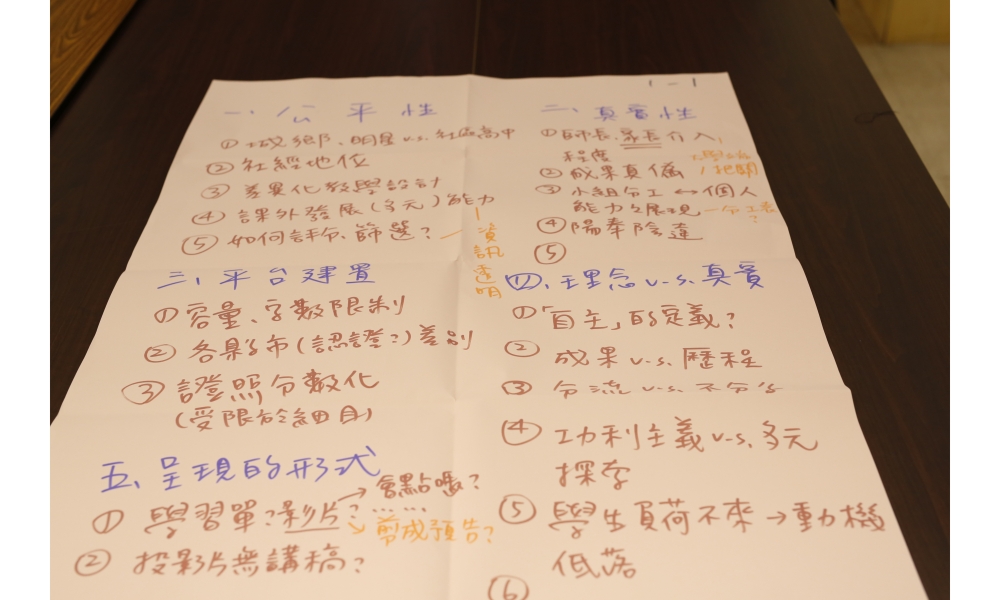 1-1
一、公平性
① 城鄉、明星 v.s. 社區高中
② 社經地位
③ 差異化教學設計
④ 課外發展(多元)能力
⑤ 如何評分、篩選?
— 資訊透明
二、真實性
① 師長、家長介入
程度
② 成果真偽
把關
③ 小組分工 ↔ 個人
能力之展現 — 分工表
④ 陽奉陰違
⑤
三、平台建置
① 容量、字數限制
② 各縣市(認證?)差別
③ 證照分數化
(受限於細目)
四、理念 v.s. 真實
① 「自主」的定義?
② 成果 v.s. 歷程
③ 分流 v.s. 不分流
④ 功利主義 v.s. 多元
探索
⑤ 學生負荷不來 → 動機
低落
⑥
五、呈現的形式
① 學習單?影片?……
→ 會點嗎?
↘ 剪成預告?
② 投影片無講稿?